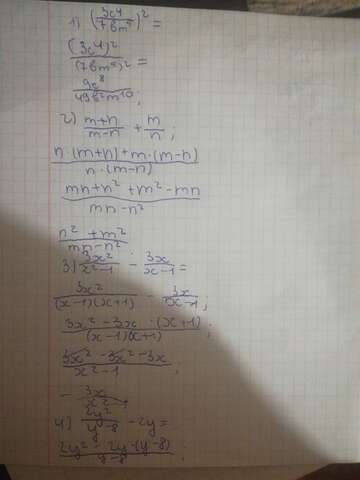 1) (3c⁴/7bm⁵)² =
(3c⁴)²/(7bm⁵)² =
9c⁸/49b²m¹⁰;
2) m+n/m-n + m/n;
n·(m+n)+m·(m-n)/n·(m-n)
mn+n²+m²-mn/mn-n²
n²+m²/mn-n²
3) 3x²/x²-1 - 3x/x-1 =
3x²/(x-1)(x+1) - 3x/x-1;
3x²-3x·(x+1)/(x-1)(x+1);
3x²-3x²-3x/x²-1;
- 3x/x²-1
4) 2y²/y-8 - 2y =
2y²-2y·(y-8)/y-8;